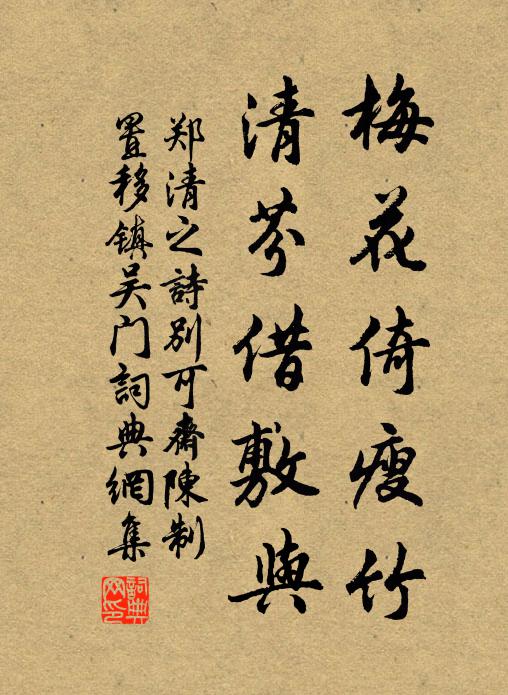 梅花倚瘦竹
清芬借敷與
郑清之詩别可齋陳制
置移镇吴门詞典網集
詞典网印